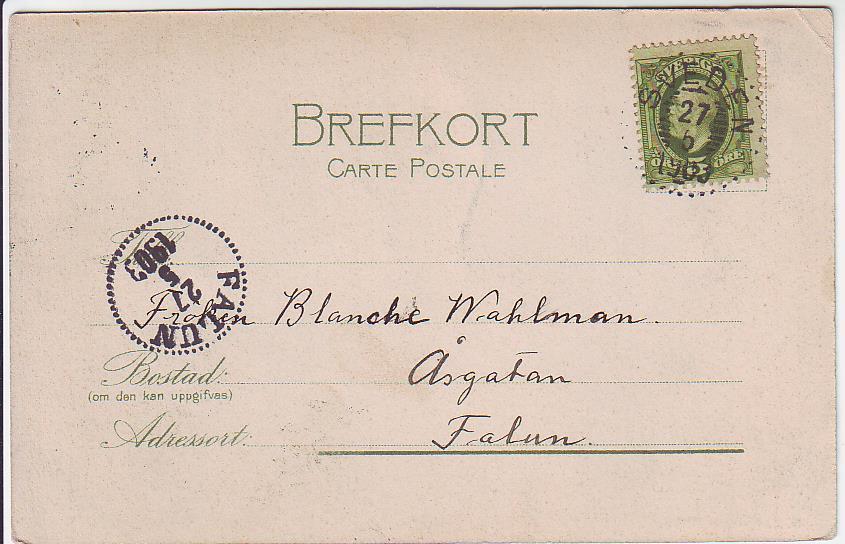 BREFKORT
CARTE POSTALE
SVERIGE
ÖRE
27
1903
Till
FALUN
27
5
1903
Fröken Blanche Wahlman.
Bostad:
Åsgatan
(om den kan uppgifvas)
Adressort:
Falun.